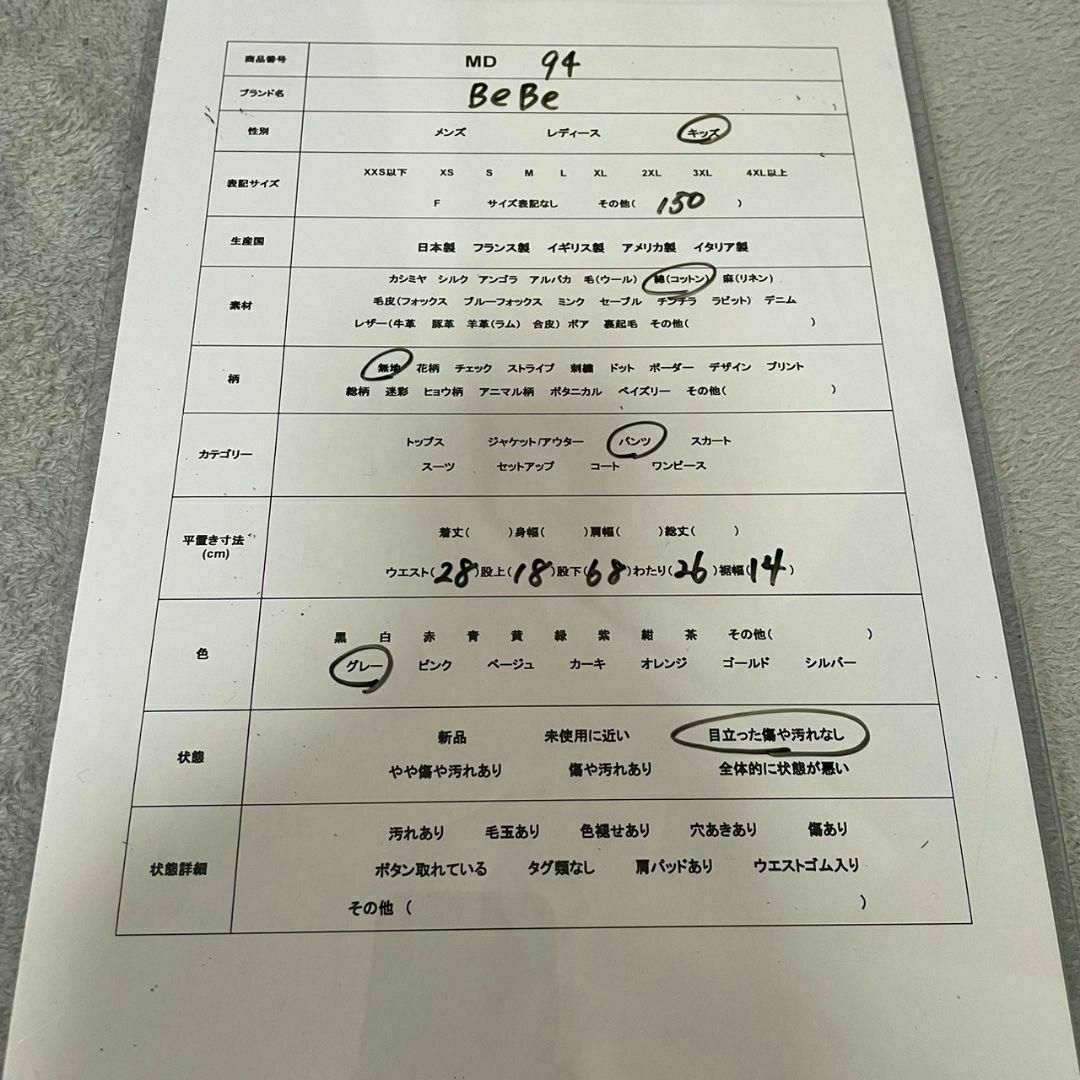 商品番号 MD 94
ブランド名 BeBe
性別 メンズ レディース キッズ
XXS以下 XS S M L XL 2XL 3XL 4XL以上
表記サイズ
F サイズ表記なし その他( 150 )
生産国 日本製 フランス製 イギリス製 アメリカ製 イタリア製
カシミヤ シルク アンゴラ アルパカ 毛(ウール) 綿(コットン) 麻(リネン)
素材 毛皮(フォックス ブルーフォックス ミンク セーブル チンチラ ラビット) デニム
レザー(牛革 豚革 羊革(ラム) 合皮) ボア 裏起毛 その他( )
無地 花柄 チェック ストライプ 刺繍 ドット ボーダー デザイン プリント
柄
総柄 迷彩 ヒョウ柄 アニマル柄 ボタニカル ペイズリー その他( )
トップス ジャケット/アウター パンツ スカート
カテゴリー
スーツ セットアップ コート ワンピース
着丈( )身幅( )肩幅( )総丈( )
平置き寸法
(cm)
ウエスト(28)股上(18)股下(68)わたり(26)裾幅(14)
黒 白 赤 青 黄 緑 紫 紺 茶 その他( )
色
グレー ピンク ベージュ カーキ オレンジ ゴールド シルバー
新品 未使用に近い 目立った傷や汚れなし
状態
やや傷や汚れあり 傷や汚れあり 全体的に状態が悪い
汚れあり 毛玉あり 色褪せあり 穴あきあり 傷あり
状態詳細 ボタン取れている タグ類なし 肩パッドあり ウエストゴム入り
その他 ( )